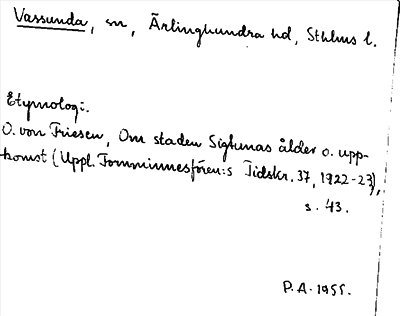 Vassunda, sn, Ärlinghundra hd, Sthlms l.
Etymologi:
O. von Friesen, Om staden Sigtunas ålder o. upp-
komst (Uppl. Fornminnesfören:s Tidskr. 37, 1922-23),
s. 43.
P.A. 1955.